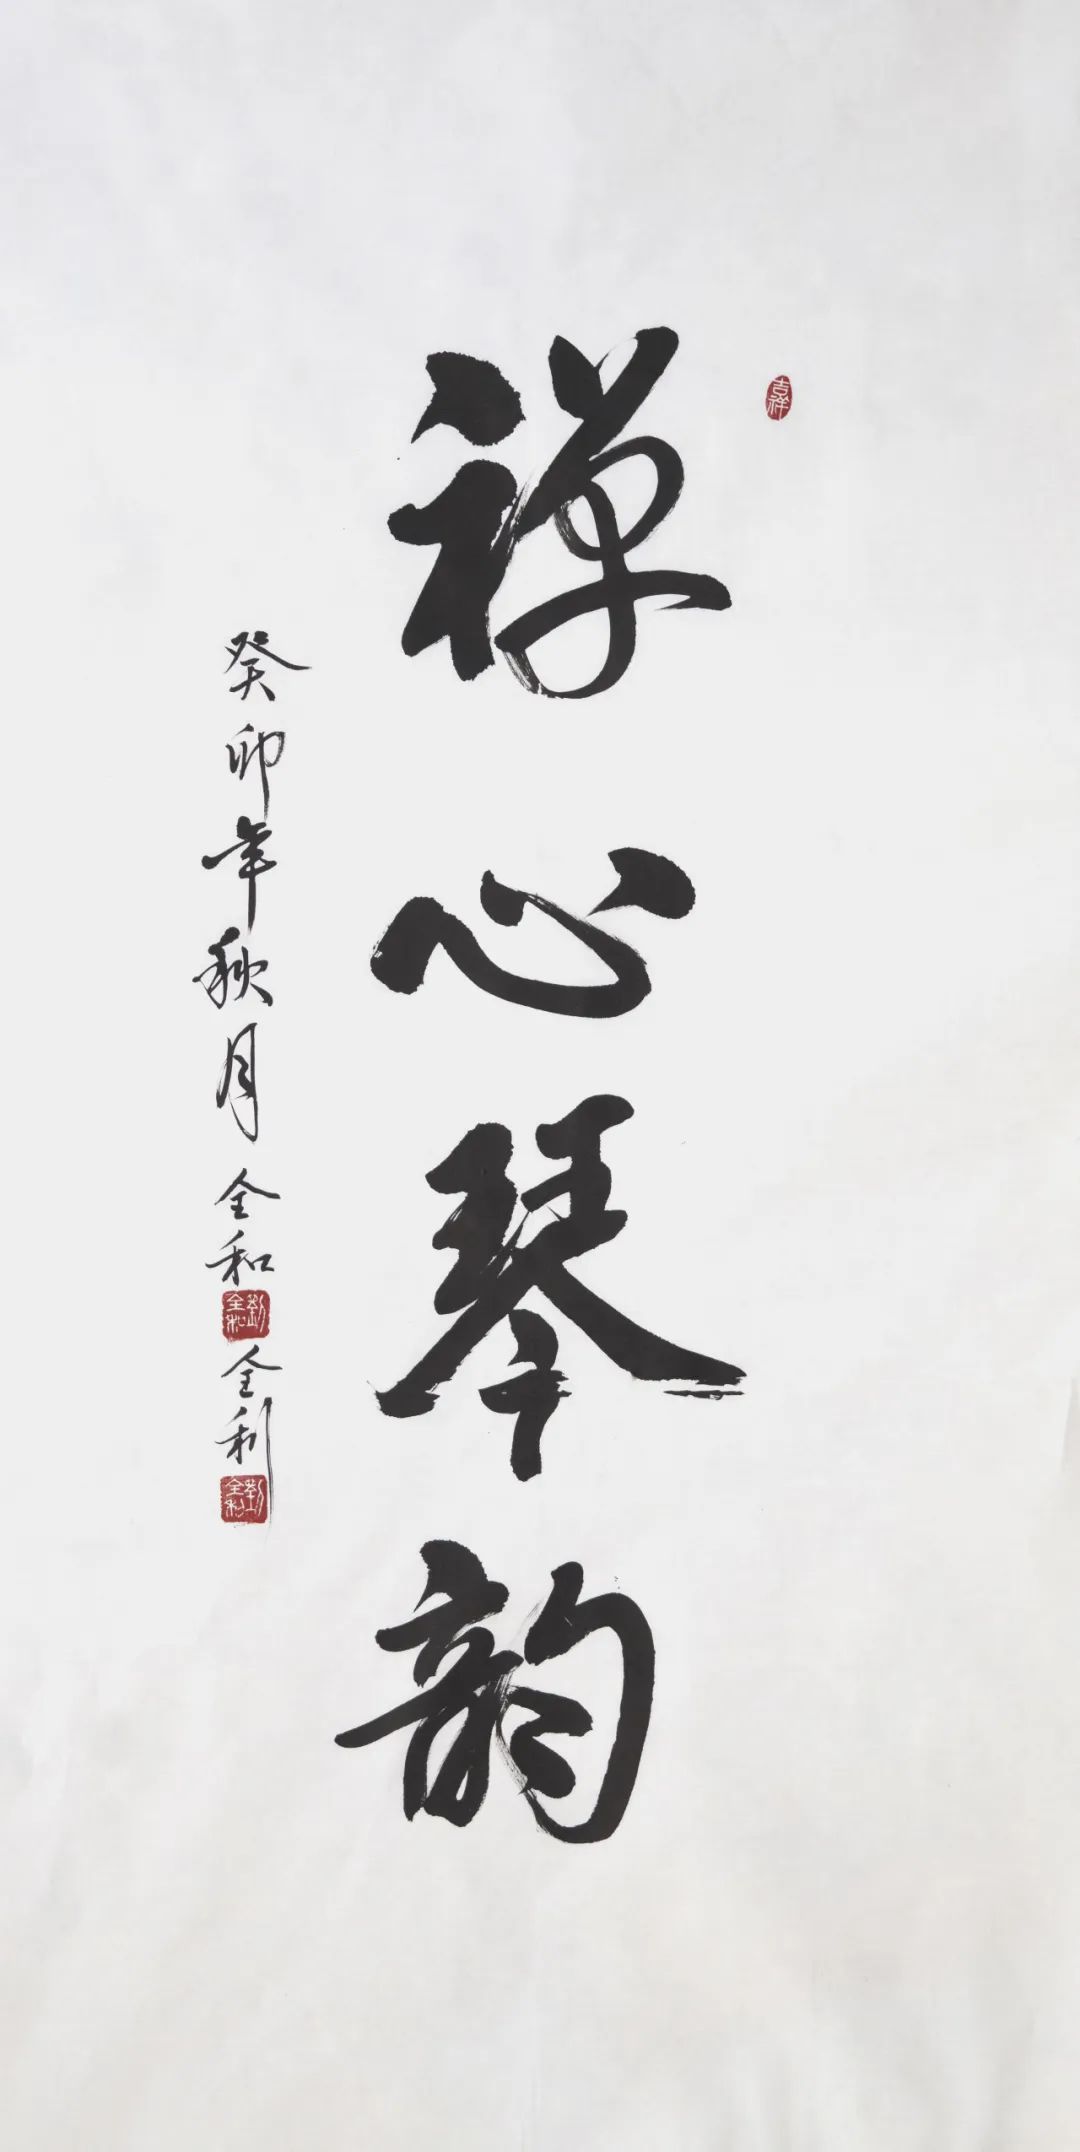 吉祥
禅心琴韵
癸卯年秋月 全和 全利
刘全和
刘全利